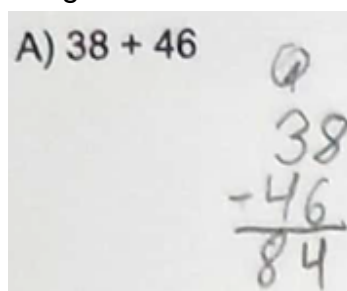 A) 38 + 46
1
38
-46
84